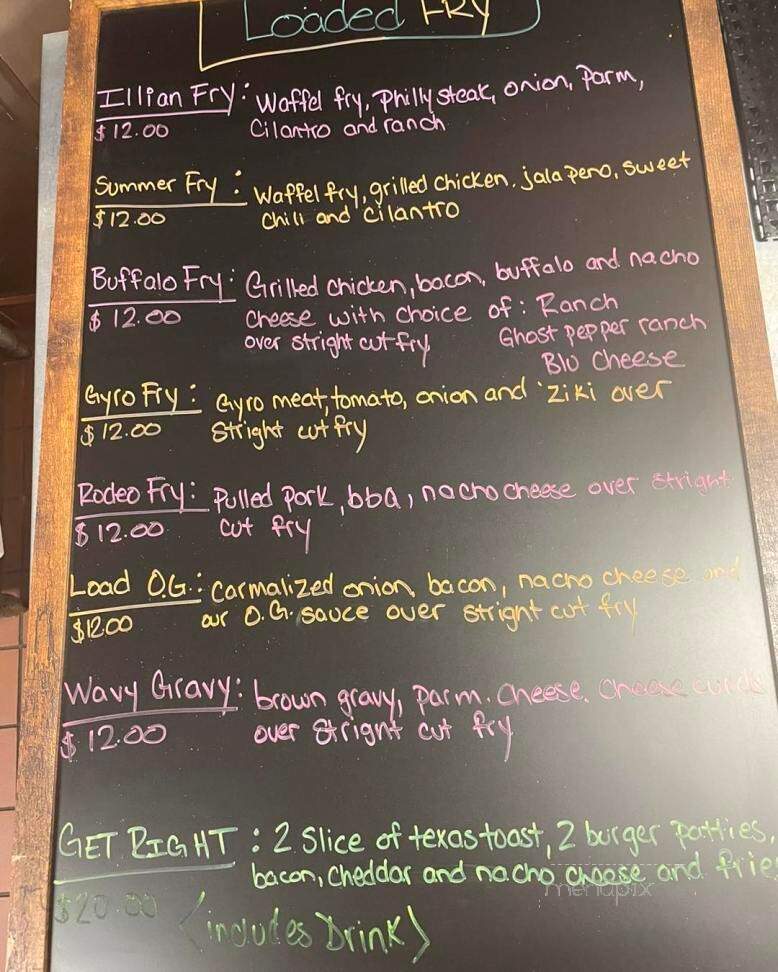 Loaded FRY
Illian Fry: Waffel fry, Philly steak, onion, Parm,
$12.00 Cilantro and ranch
Summer Fry: Waffel fry, grilled chicken, jalapeno, sweet
$12.00 chili and cilantro
Buffalo Fry: Grilled chicken, bacon, buffalo and nacho
$12.00 cheese with choice of: Ranch
over stright cut fry Ghost pepper ranch
Blu Cheese
Gyro Fry: Gyro meat, tomato, onion and 'ziki over
$12.00 Stright cut fry
Rodeo Fry: Pulled pork, bbq, nacho cheese over stright
$12.00 cut fry
Load O.G.: Carmalized onion, bacon, nacho cheese and
$12.00 our O.G. sauce over stright cut fry
Wavy Gravy: brown gravy, parm. cheese, cheese curds
$12.00 over stright cut fry
GET RIGHT: 2 Slice of texas toast, 2 burger patties,
bacon, cheddar and nacho cheese and fries
$20.00 (includes Drink)
menupix